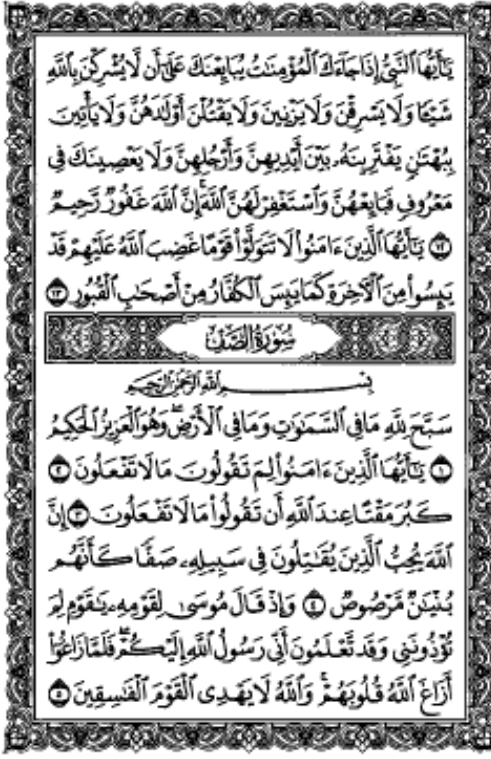 يَـٰٓأَيُّهَا ٱلنَّبِىُّ إِذَا جَآءَكَ ٱلْمُؤْمِنَـٰتُ يُبَايِعْنَكَ عَلَىٰٓ أَن لَّا يُشْرِكْنَ بِٱللَّهِ
شَيْـًٔا وَلَا يَسْرِقْنَ وَلَا يَزْنِينَ وَلَا يَقْتُلْنَ أَوْلَـٰدَهُنَّ وَلَا يَأْتِينَ
بِبُهْتَـٰنٍ يَفْتَرِينَهُۥ بَيْنَ أَيْدِيهِنَّ وَأَرْجُلِهِنَّ وَلَا يَعْصِينَكَ فِى
مَعْرُوفٍ فَبَايِعْهُنَّ وَٱسْتَغْفِرْ لَهُنَّ ٱللَّهَ إِنَّ ٱللَّهَ غَفُورٌ رَّحِيمٌ
١٢ يَـٰٓأَيُّهَا ٱلَّذِينَ ءَامَنُوا۟ لَا تَتَوَلَّوْا۟ قَوْمًا غَضِبَ ٱللَّهُ عَلَيْهِمْ قَدْ
يَئِسُوا۟ مِنَ ٱلْـَٔاخِرَةِ كَمَا يَئِسَ ٱلْكُفَّارُ مِنْ أَصْحَـٰبِ ٱلْقُبُورِ ١٣
سُورَةُ الصَّفِّ
بِسْمِ ٱللَّهِ ٱلرَّحْمَـٰنِ ٱلرَّحِيمِ
سَبَّحَ لِلَّهِ مَا فِى ٱلسَّمَـٰوَٰتِ وَمَا فِى ٱلْأَرْضِ ۖ وَهُوَ ٱلْعَزِيزُ ٱلْحَكِيمُ
١ يَـٰٓأَيُّهَا ٱلَّذِينَ ءَامَنُوا۟ لِمَ تَقُولُونَ مَا لَا تَفْعَلُونَ ٢
كَبُرَ مَقْتًا عِندَ ٱللَّهِ أَن تَقُولُوا۟ مَا لَا تَفْعَلُونَ ٣ إِنَّ
ٱللَّهَ يُحِبُّ ٱلَّذِينَ يُقَـٰتِلُونَ فِى سَبِيلِهِۦ صَفًّا كَأَنَّهُم
بُنْيَـٰنٌ مَّرْصُوصٌ ٤ وَإِذْ قَالَ مُوسَىٰ لِقَوْمِهِۦ يَـٰقَوْمِ لِمَ
تُؤْذُونَنِى وَقَد تَّعْلَمُونَ أَنِّى رَسُولُ ٱللَّهِ إِلَيْكُمْ ۖ فَلَمَّا زَاغُوٓا۟
أَزَاغَ ٱللَّهُ قُلُوبَهُمْ ۚ وَٱللَّهُ لَا يَهْدِى ٱلْقَوْمَ ٱلْفَـٰسِقِينَ ٥